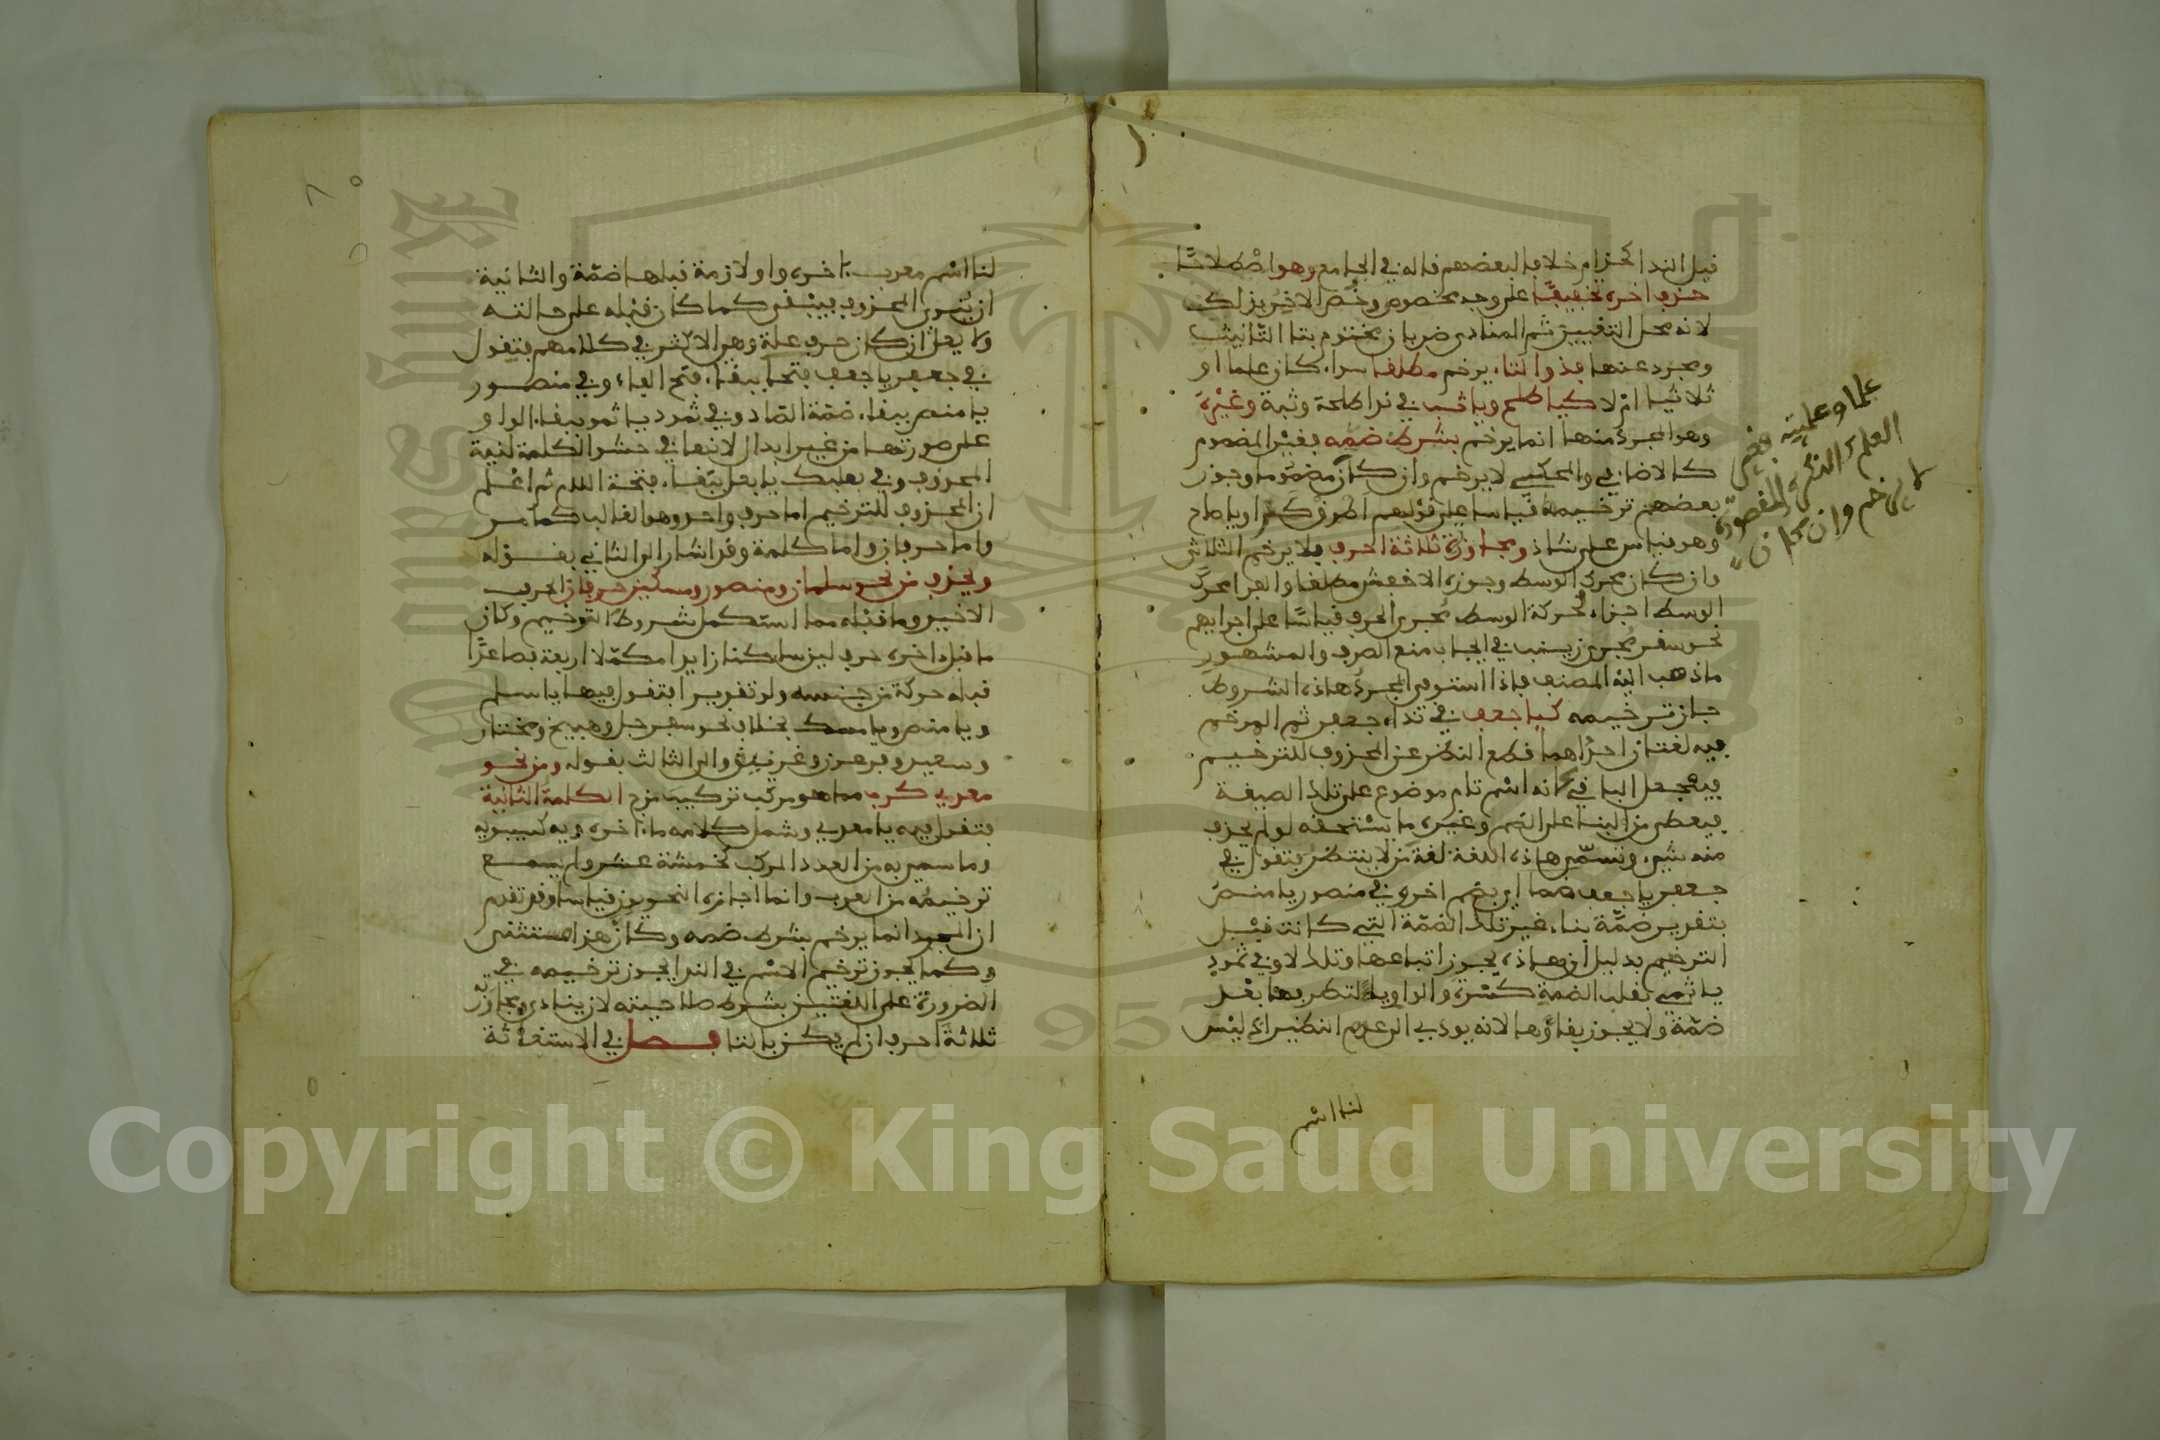 قبل النداء كجزام خلافا لبعضهم قاله في الجامع وهو اصطلاحا
حذف اخره تخفيفا على وجه مخصوص وخص الاخر بذلك
لانه محل التغيير ثم المنادى ضربان مختوم بتاء التانيث
ومجرد عنها فذو التاء يرخم مطلقا سواء كان علما او
ثلاثيا ام لا كيا طلح ويا ثب في ندا طلحة وثبة وغيره
وهو المجرد منها انما يرخم بشرط ضمه فغير المضموم
كالاضافي والمحكي لا يرخم وان كان مضموما وجوز
بعضهم ترخيمه قياسا على قولهم اطرق كرا ويا صاح
وهو قياس على شاذ ومجاوزة ثلاثة احرف فلا يرخم الثلاثي
وان كان محرك الوسط وجوزه الاخفش مطلقا والفرا محرك
الوسط اجراء لحركة الوسط مجرى الحرف قياسا على اجرايهم
نحو سقر مجرى زينب في ايجاب منع الصرف والمشهور
ما ذهب اليه المصنف فاذا استوفى المجرد هاذه الشروط
جاز ترخيمه كيا جعف في نداء جعفر ثم المرخم
فيه لغتان احداهما قطع النظر عن المحذوف للترخيم
فيجعل الباقي كانه اسم تام موضوع على تلك الصيغة
فيعطى من البناء على الضم وغيره ما يستحقه لو لم يحذف
منه شيء وتسمى هاذه اللغة لغة من لا ينتظر فتقول في
جعفر يا جعف ضما اي بضم اخره وفي منصور يا منص
بتقدير ضمة بناء غير تلك الضمة التي كانت قبل
الترخيم بدليل ان هاذه يجوز اتباعها وتلك لا وفي ثمود
يا ثمي بقلب الضمة كسرة والواو ياء لتطرفها بعد
ضمة ولا يجوز بقاؤها لانه يودي الى عدم النظير اذ ليس
لنا اسم
علما وعلميته بغير
العلم والنكرة المقصودة
لا يرخم وان كان
لنا اسم معرب اخره واو لازمة قبلها ضمة والثانية
ان ينوى المحذوف فيبقى كما كان قبله على حالته
ولا يعل ان كان حرف علة وهو الاكثر في كلامهم فتقول
في جعفر يا جعف فتحا ببقاء فتح الفاء وفي منصور
يا منص ببقاء ضمة الصاد وفي ثمود يا ثمو ببقاء الواو
على صورتها من غير ابدال لانها في حشو الكلمة لنية
المحذوف وفي بعلبك يا بعل ببقاء فتحة اللام ثم اعلم
ان المحذوف للترخيم اما حرف واحد وهو الغالب كما مر
واما حرفان واما كلمة وقد اشار الى الثاني بقوله
ويحذف من نحو سلمان ومنصور ومسكين حرفان الحرف
الاخير وما قبله مما استكمل شروط الترخيم وكان
ما قبل اخره حرف لين ساكنا زايدا مكملا اربعة فصاعدا
قبله حركة من جنسه ولو تقديرا فتقول فيها يا سلم
ويا منص ويا مسك بخلاف نحو سفرجل وهبيخ ومختار
وسعيد وفرعون وغرنيق والى الثالث بقوله ومن نحو
معدي كرب مما هو مركب تركيب مزج الكلمة الثانية
فتقول فيه يا معدي وشمل كلامه ما اخره ويه كسيبويه
وما سمي به من العدد المركب كخمسة عشر ولم يسمع
ترخيمه من العرب وانما اجازه النحويون قياسا وقد تقدم
ان المجرد انما يرخم بشرط ضمه وكان هذا مستثنى
وكما يجوز ترخيم الاسم في الندا يجوز ترخيمه في
الضرورة على اللغتين بشرط صلاحيته لان ينادى ومجاوز
ثلاثة احرف ان لم يكن بالتا فصل في الاستغاثة